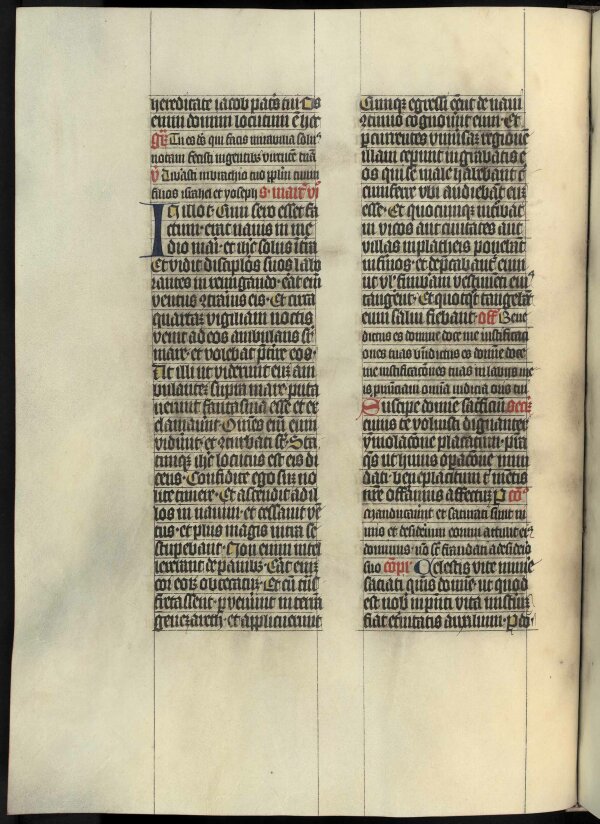 hereditate iacob patris tui Os
enim domini locutum est hec
Gr Tu es deus qui facis mirabilia solus
notam fecisti in gentibus virtutem tuam
V Liberasti in brachio tuo populum tuum
filios israhel et yoseph s. marcum vi
In illo t. Cum sero esset fa
ctum erat nauis in me
dio mari et ihesus solus in terra
Et vidit discipulos suos labo
rantes in remigando erat enim
ventus contrarius eis Et circa
quartam vigiliam noctis
venit ad eos ambulans super
mare et volebat preterire eos
At illi ut viderunt eum am
bulantem supra mare puta
uerunt fantasma esse et ex
clamauerunt Omnes enim eum
viderunt et conturbati sunt Sta
timque ihesus locutus est eis di
cens Confidite ego sum no
lite timere Et ascendit ad il
los in nauim et cessauit ven
tus et plus magis intra se
stupebant Non enim intel
lexerant de panibus Erat enim
cor eorum obcecatum Et cum trans
fretassent peruenerunt in terram
genezareth et applicuerunt
Cumque egressi essent de naui
continuo cognouerunt eum Et
percurrentes vniuersam regionem
illam ceperunt in grabatis e
os qui se male habebant cir
cumferre vbi audiebant eum
esse Et quocumque introibat
in vicos aut ciuitates aut
villas in plateis ponebant
infirmos et deprecabantur eum
ut vel fimbriam vestimenti eius
tangerent Et quotquot tangebant
eum salui fiebant Off Bene
dictus es domine doce me iustificati
ones tuas benedictus es domine doce
me iustificationes tuas in labiis me
is pronunciaui omnia iudicia oris tui
Suscipe domine sacrificium Secr
cuius te voluisti dignanter
immolatione placatum presta
quesumus ut huius operatione mun
dati beneplacitum tibi mentis
nostre offeramus affectum Per co
Manducauerunt et saturati sunt ni
mis et desiderium eorum attulit eis
dominus non sunt fraudati a desiderio
suo compl Celestis vite munere
satiati quesumus domine ut quod
est nobis in presenti vita misterium
fiat eternitatis auxilium Per dominum